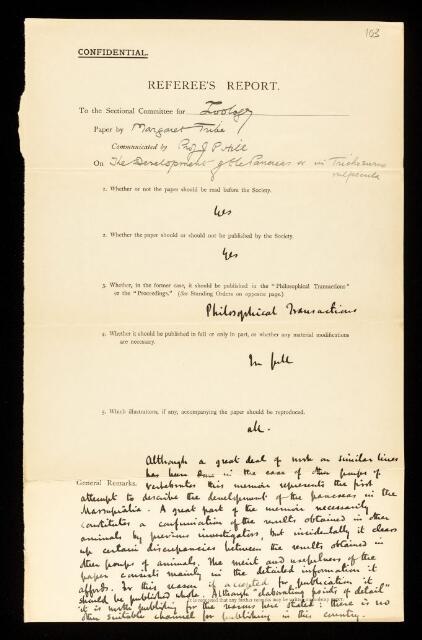 103
CONFIDENTIAL.
REFEREE'S REPORT.
To the Sectional Committee for Zoology
Paper by Margaret Tribe
Communicated by Prof J P Hill
On The Development of the Pancreas &c in Trichosurus
vulpecula
1. Whether or not the paper should be read before the Society.
Yes
2. Whether the paper should or should not be published by the Society.
Yes
3. Whether, in the former case, it should be published in the "Philosophical Transactions"
or the "Proceedings." (See Standing Orders on opposite page.)
Philosophical Transactions
4. Whether it should be published in full or only in part, or whether any material modifications
are necessary.
In full
5. Which illustrations, if any, accompanying the paper should be reproduced.
all.
Although a great deal of work on similar lines
has been done in the case of other groups of
General Remarks. vertebrates this memoir represents the first
attempt to describe the development of the pancreas in the
Marsupialia. A great part of the memoir necessarily
constitutes a confirmation of the results obtained in other
animals by previous investigators, but incidentally it clears
up certain discrepancies between the results obtained in
other groups of animals. The merit and usefulness of the
paper consists mainly in the detailed information it
affords. For this reason if accepted for publication it
should be published whole. Although "elaborating points of detail"
it is worth publishing for the reasons here stated: there is no
other suitable channel for publishing in this country.